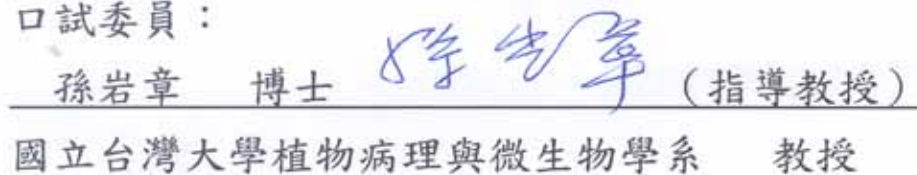 口試委員：
孫岩章 博士 孫岩章 （指導教授）
國立台灣大學植物病理與微生物學系 教授